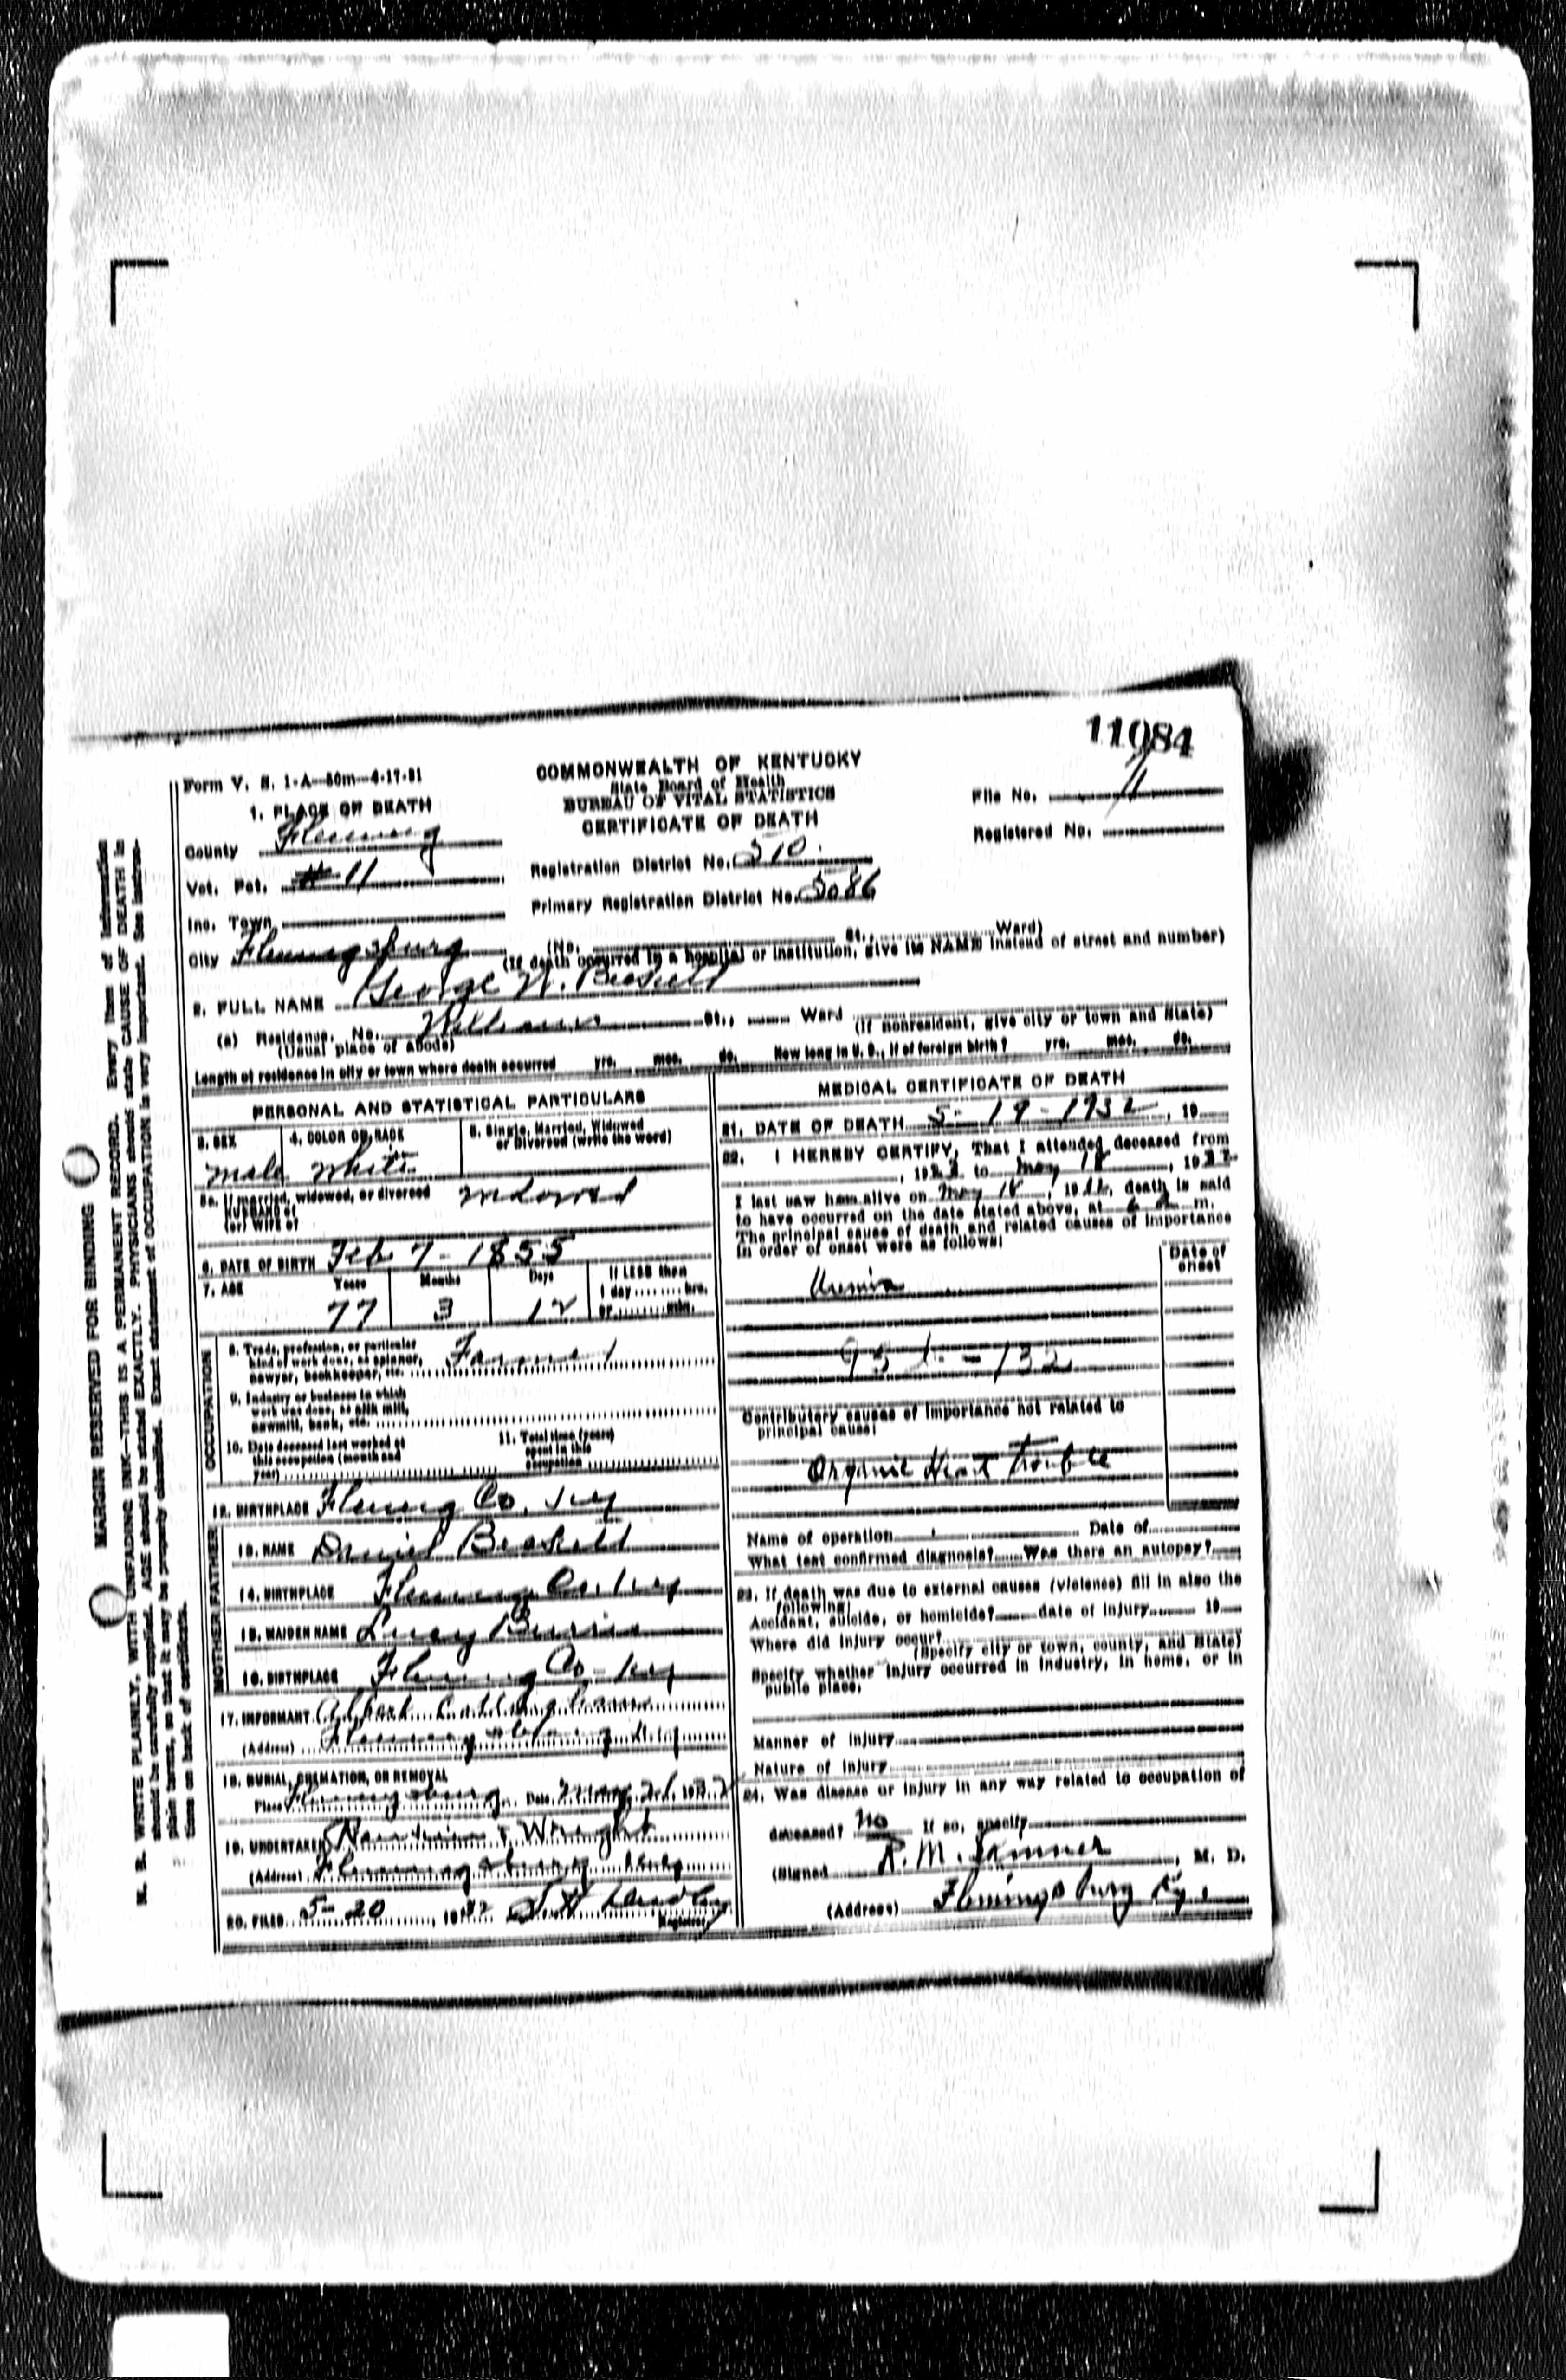 11084
Form V. S. 1-A—50m—4-17-31
COMMONWEALTH OF KENTUCKY
State Board of Health
BUREAU OF VITAL STATISTICS
CERTIFICATE OF DEATH
File No. 11
Registered No.
1. PLACE OF DEATH
County Fleming
Vot. Pct. #11
Inc. Town
City Flemingsburg
Registration District No. 510.
Primary Registration District No. 5086
(No. St., Ward)
(If death occurred in a hospital or institution, give its NAME instead of street and number)
2. FULL NAME George W. Beckett
(a) Residence. No. St., Ward
(Usual place of abode)
(If nonresident, give city or town and State)
Length of residence in city or town where death occurred yrs. mos. ds. How long in U. S., if of foreign birth? yrs. mos. ds.
PERSONAL AND STATISTICAL PARTICULARS
3. SEX
male
4. COLOR OR RACE
White
5. Single, Married, Widowed or Divorced (write the word)
widowed
5a. If married, widowed, or divorced
HUSBAND of
(or) WIFE of
6. DATE OF BIRTH Feb 7 - 1855
7. AGE Years Months Days If LESS than
1 day ........ hrs.
or ........ min.
77 3 12
OCCUPATION
8. Trade, profession, or particular kind of work done, as spinner, sawyer, bookkeeper, etc. Farmer
9. Industry or business in which work was done, as silk mill, sawmill, bank, etc.
10. Date deceased last worked at this occupation (month and year)
11. Total time (years) spent in this occupation
12. BIRTHPLACE Fleming Co. Ky
FATHER
13. NAME Daniel Beckett
14. BIRTHPLACE Fleming Co. Ky
MOTHER
15. MAIDEN NAME Lucy Burris
16. BIRTHPLACE Fleming Co - Ky
17. INFORMANT
(Address) Flemingsburg Ky
18. BURIAL, CREMATION, OR REMOVAL
Place Flemingsburg Date May 21, 1932
19. UNDERTAKER & Wright
(Address) Flemingsburg Ky
20. FILED 5-20, 1932
Registrar
MEDICAL CERTIFICATE OF DEATH
21. DATE OF DEATH 5 - 19 - 1932, 19
22. I HEREBY CERTIFY, That I attended deceased from
, 19 to May 18, 1932
I last saw him alive on May 18, 1932, death is said
to have occurred on the date stated above, at 6 a m.
The principal cause of death and related causes of importance
in order of onset were as follows:
Date of onset
Uremia
Contributory causes of importance not related to
principal cause:
Organic Heart Trouble
Name of operation Date of
What test confirmed diagnosis? Was there an autopsy?
23. If death was due to external causes (violence) fill in also the
following:
Accident, suicide, or homicide? date of injury 19
Where did injury occur?
(Specify city or town, county, and State)
Specify whether injury occurred in industry, in home, or in
public place.
Manner of injury
Nature of injury
24. Was disease or injury in any way related to occupation of
deceased? no If so, specify
(Signed , M. D.
(Address) Flemingsburg Ky.
MARGIN RESERVED FOR BINDING
N. B. WRITE PLAINLY, WITH UNFADING INK—THIS IS A PERMANENT RECORD. Every item of information
should be carefully supplied. AGE should be stated EXACTLY. PHYSICIANS should state CAUSE OF DEATH in
plain terms, so that it may be properly classified. Exact statement of OCCUPATION is very important. See instruc-
tions on back of certificate.